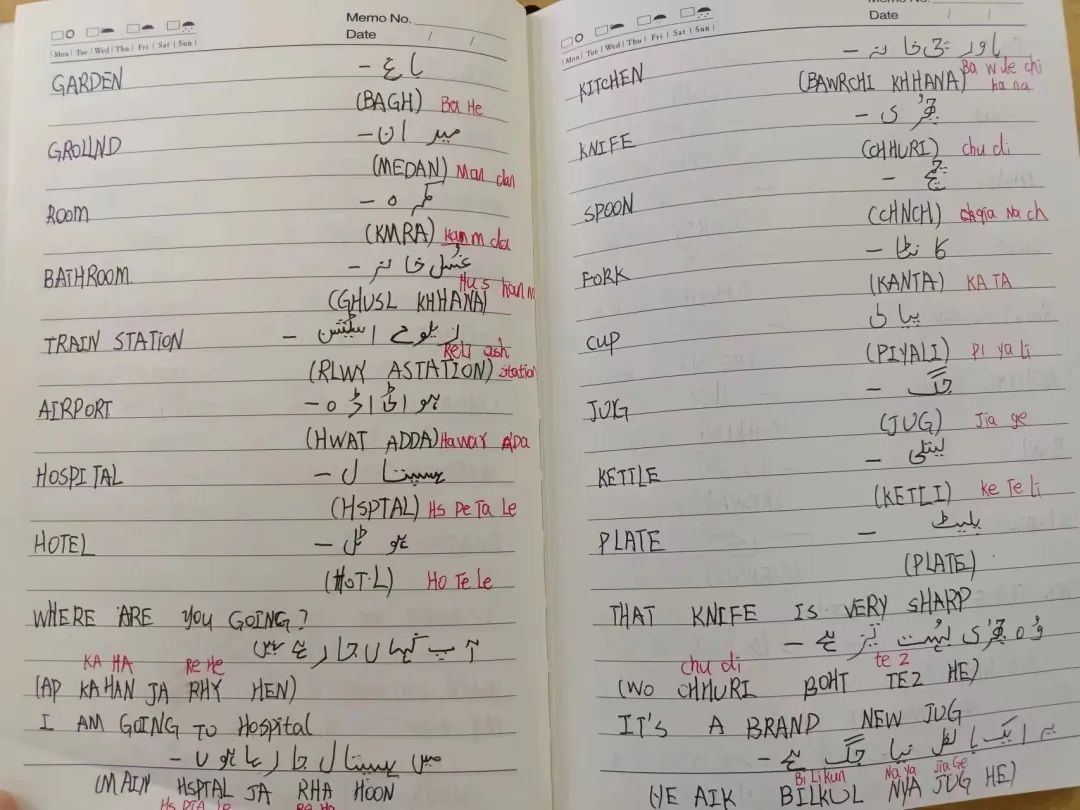 Memo No.
Date / /
Mon Tue Wed Thu Fri Sat Sun
GARDEN – باغ
(BAGH) Ba He
GROUND – میدان
(MEDAN) Man dan
ROOM – کمرہ
(KMRA) Kan m da
BATHROOM. – غسل خانہ
Hu s han
(GHUSL KHHANA)
TRAIN STATION – ریلوے اسٹیشن
Reli ash
(RLWY ASTATION) station
AIRPORT – ہوائی اڈہ
(HWAT ADDA) Haway ADa
HOSPITAL – ہسپتال
(HSPTAL) Hs Pe Ta Le
HOTEL – ہوٹل
(HOT.L) Ho Te Le
WHERE ARE YOU GOING?
آپ کہاں جا رہے ہیں
KA HA Re He
(AP KAHAN JA RHY HEN)
I AM GOING TO Hospital
میں ہسپتال جا رہا ہوں –
(MAIN HSPTAL JA RHA HOON
Memo No.
Date / /
Mon Tue Wed Thu Fri Sat Sun
KITCHEN – باورچی خانہ
(BAWRCHI KHHANA) Ba w de chi
ha na
KNIFE – چھُری
(CHHURI) chu di
SPOON – چمچ
(CHNCH) Na ch
FORK – کانٹا
(KANTA) KA TA
CUP پیالی
(PIYALI) Pi ya li
JUG – جگ
(JUG) Jia ge
KETTLE – کیتلی
(KETLI) Ke Te li
PLATE – پلیٹ
(PLATE)
THAT KNIFE IS VERY SHARP
وُہ چھُری بہُت تیز ہے –
chu di te z
(WO CHHURI BOHT TEZ HE)
IT'S A BRAND NEW JUG
یہ ایک بالکل نیا جگ ہے –
Bi Li Kun Na ya Jia Ge
(YE AIK BILKUL NYA JUG HE)